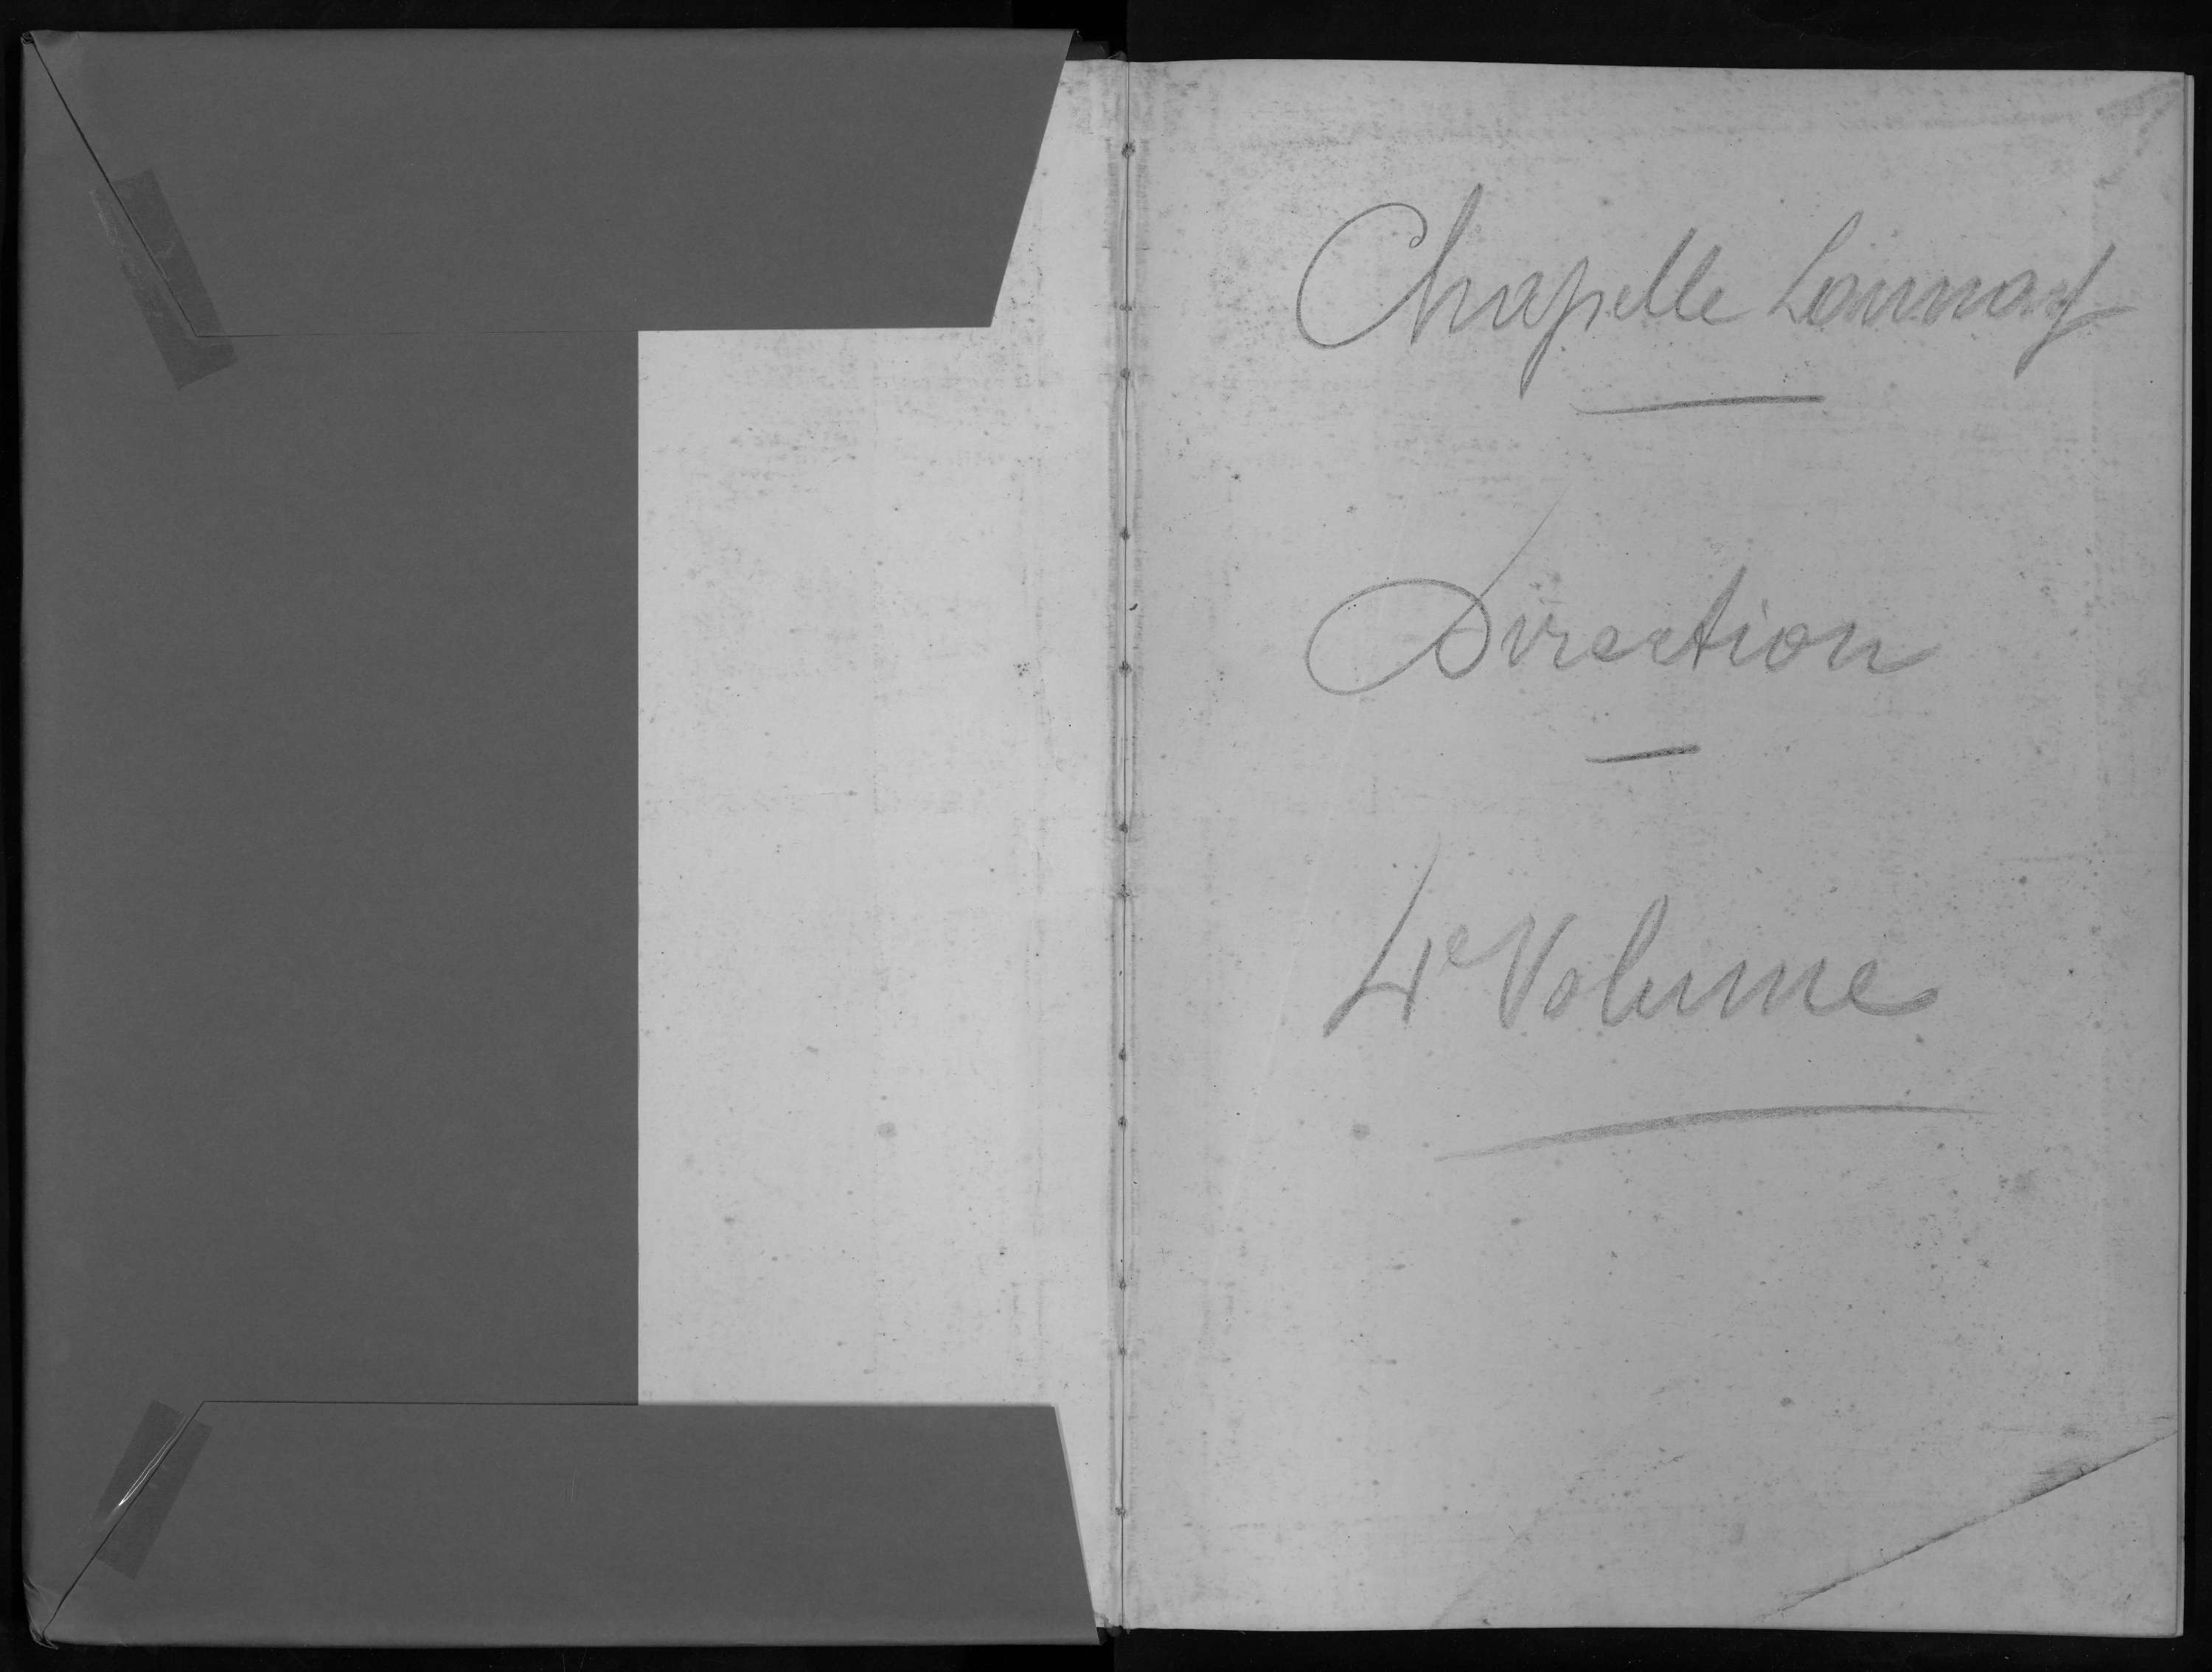 Chapelle Launay
Direction
4e Volume